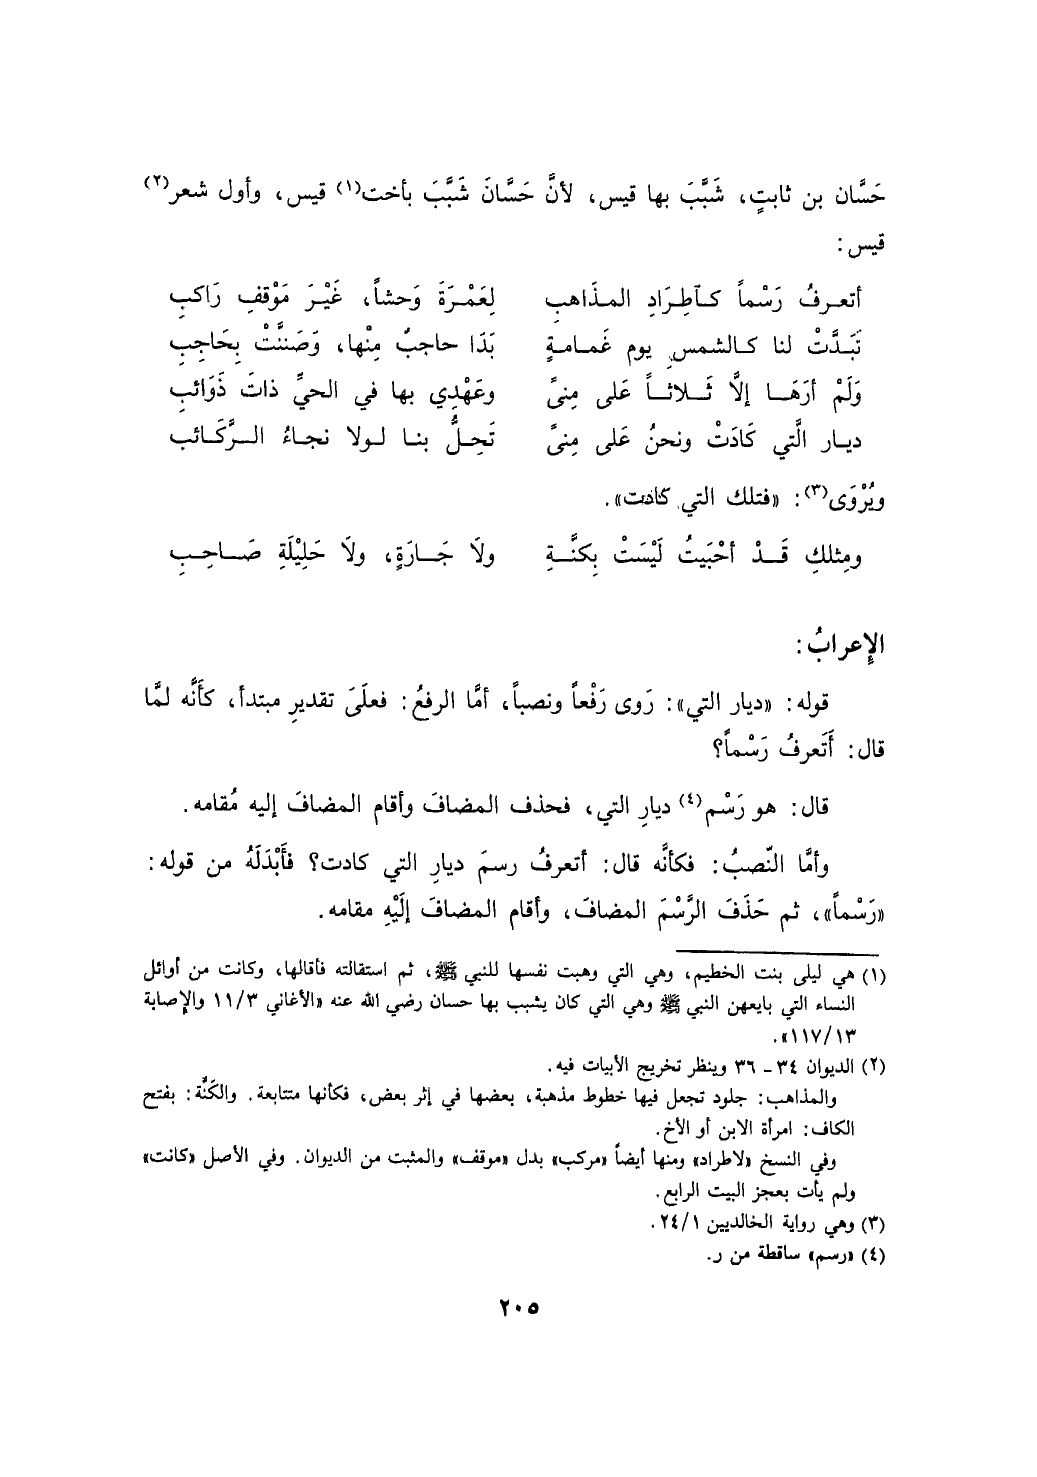 حَسَّان بن ثابتٍ، شَبَّبَ بها قيس، لأنَّ حَسَّانَ شَبَّبَ بأخت(١) قيس، وأول شعر(٢)
قيس:
أتعرفُ رَسْماً كآطِرَادِ المذَاهبِ لِعَمْرَةَ وَحشاً، غَيْرَ مَوْقفِ رَاكبِ
تَبَدَّتْ لنا كالشمسِ يوم غَمامةٍ بَدَا حاجبٌ مِنْها، وَضَنَّتْ بِحَاجِبِ
وَلَمْ أرَهَا إلَّا ثَلاثاً عَلى مِنىً وعَهْدِي بها في الحيِّ ذاتَ ذَوَائبِ
ديار الَّتي كَادَتْ ونحنُ عَلى مِنىً تَحِلُّ بنا لولا نجاءُ الرَّكَائب
ويُرْوَى(٣): «فتلك التي كادت».
ومِثلكِ قَدْ أحْبَبْتُ لَيْسَتْ بِكنَّةِ ولاَ جَارَةٍ، ولاَ حَلِيْلَةِ صَاحِبِ
الإعرابُ:
قوله: «ديار التي»: رَوى رَفْعاً ونصباً، أمَّا الرفعُ: فعلَىَ تقديرِ مبتدأ، كأَنَّه لمَّا
قال: أَتَعرفُ رَسْماً؟
قال: هو رَسْم(٤) ديارِ التي، فحذف المضافَ وأقام المضافَ إليه مُقامه.
وأمَّا النّصبُ: فكأنَّه قال: أتعرفُ رسمَ ديارِ التي كادت؟ فأَبْدَلَهُ من قوله:
«رَسْماً»، ثم حَذَفَ الرَّسْمَ المضافَ، وأقام المضافَ إلَيْهِ مقامه.
(١) هي ليلى بنت الخطيم، وهي التي وهبت نفسها للنبي ﷺ، ثم استقالته فأقالها، وكانت من أوائل
النساء التي بايعهن النبي ﷺ وهي التي كان يشبب بها حسان رضي الله عنه «الأغاني ١١/٣ والإصابة
١١٧/١٣».
(٢) الديوان ٣٤ - ٣٦ وينظر تخريج الأبيات فيه.
والمذاهب: جلود تجعل فيها خطوط مذهبة، بعضها في إثر بعض، فكأنها متتابعة. والكَنَّة: بفتح
الكاف: امرأة الابن أو الأخ.
وفي النسخ «لاطراد» ومنها أيضاً «مركب» بدل «موقف» والمثبت من الديوان. وفي الأصل «كانت»
ولم يأت بعجز البيت الرابع.
(٣) وهي رواية الخالديين ٢٤/١.
(٤) «رسم» ساقطة من ر.
٢٠٥